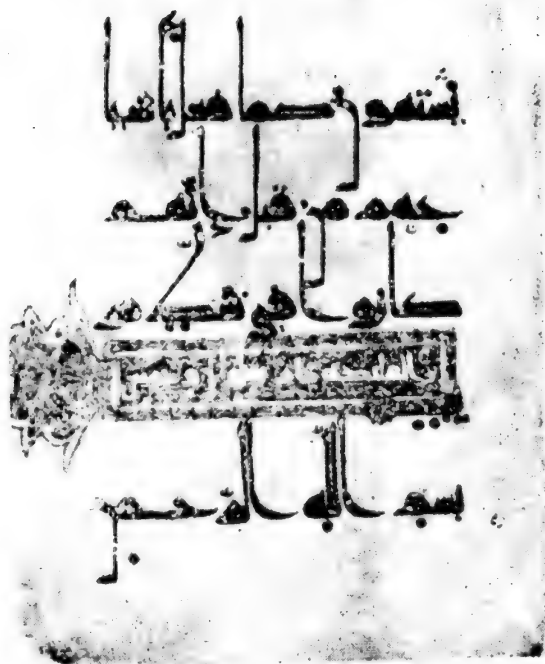 يشتهون كما فعل باشيا
عهم من قبل انهم
كانوا في شك مر
يب
الملئكة
بسم الله الرحمن